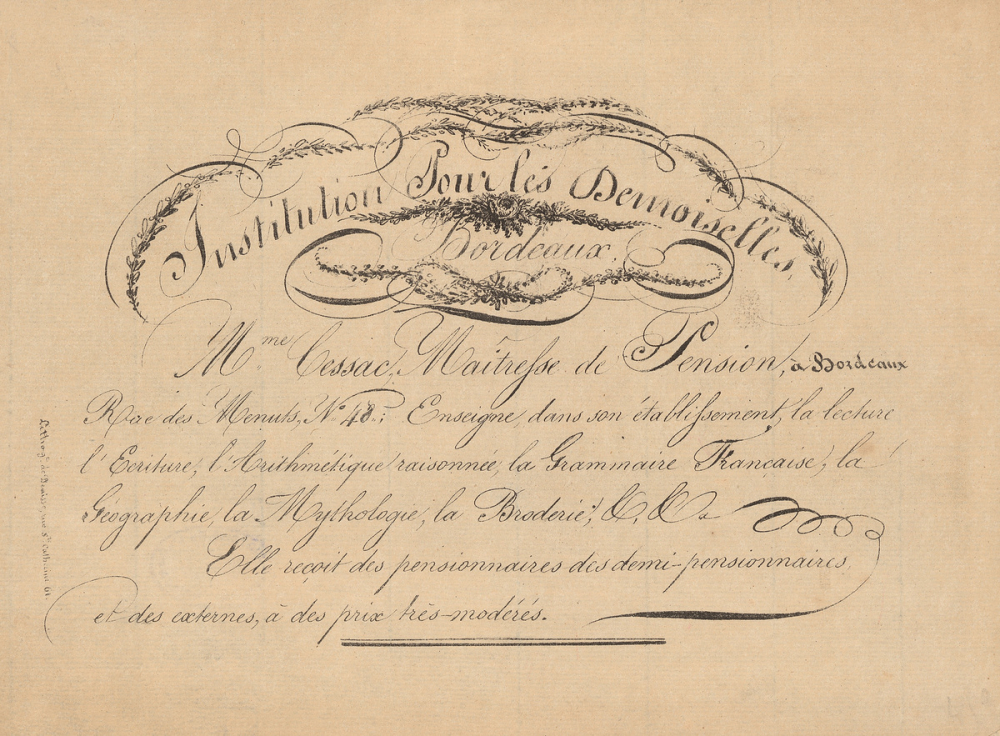 Institution Pour les Demoiselles,
Bordeaux.
Mme. Cessac, Maîtresse de Pension, à Bordeaux
Rue des Menuts, N.° 48.; Enseigne, dans son établissement, la lecture
l'Ecriture, l'Arithmétique raisonnée, la Grammaire Française, la
Géographie, la Mythologie, la Broderie, &, &a
Elle reçoit des pensionnaires des demi-pensionnaires,
et des externes, à des prix très-modérés.
Lithog. de rue Ste Catherine 61.